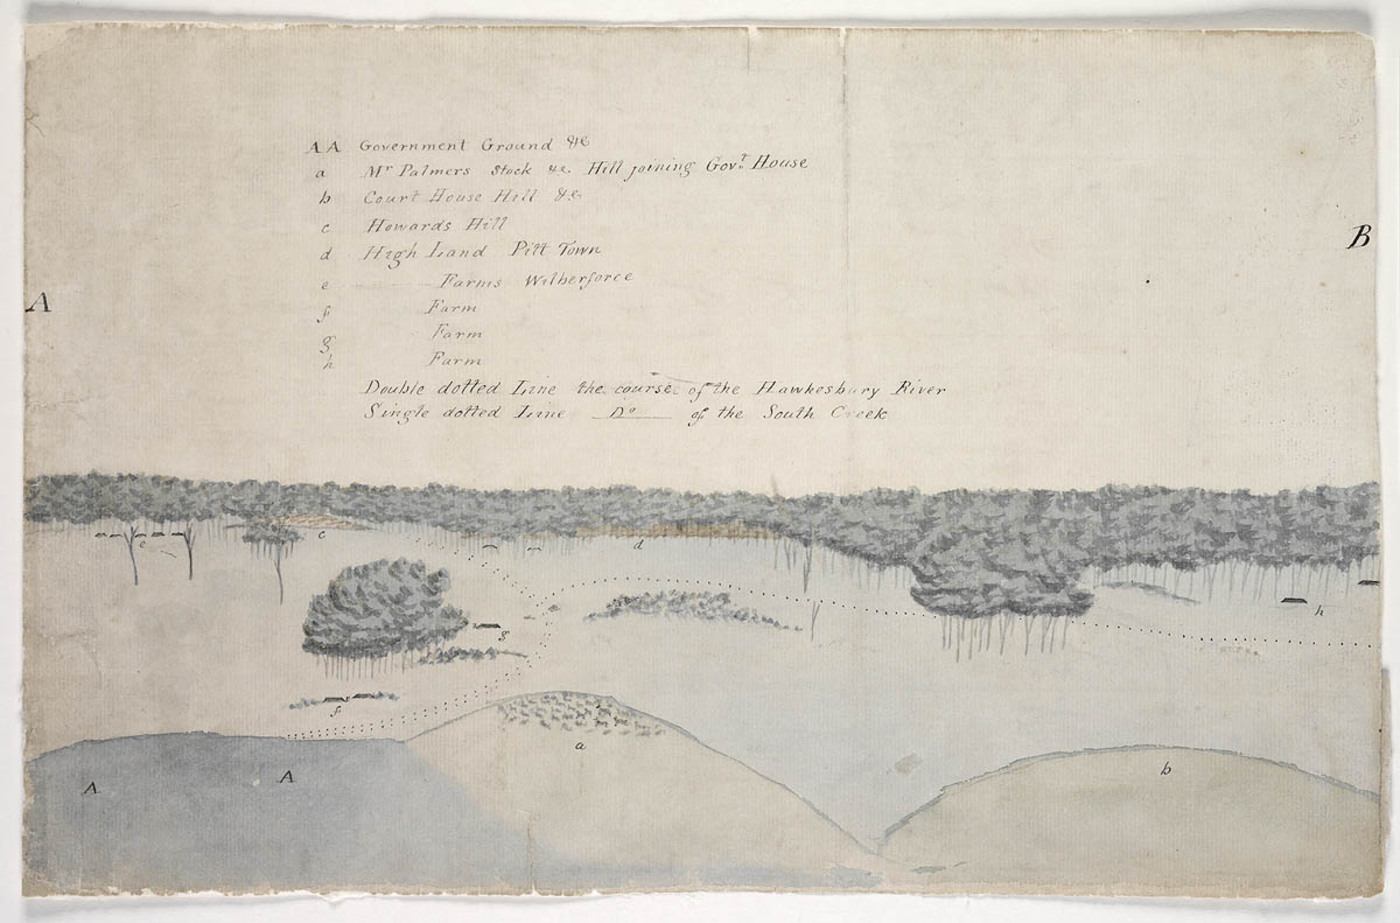 AA Government Ground &c
a Mr Palmers Stock &c. Hill joining Govt. House
b Court House Hill &c
c Howards Hill
d High Land Pitt Town
e Farms Wilberforce
f Farm
g Farm
h Farm
Double dotted Line the course of the Hawkesbury River
Single dotted Line Do of the South Creek
B
A
c
e
d
g
h
f
a
b
A
A